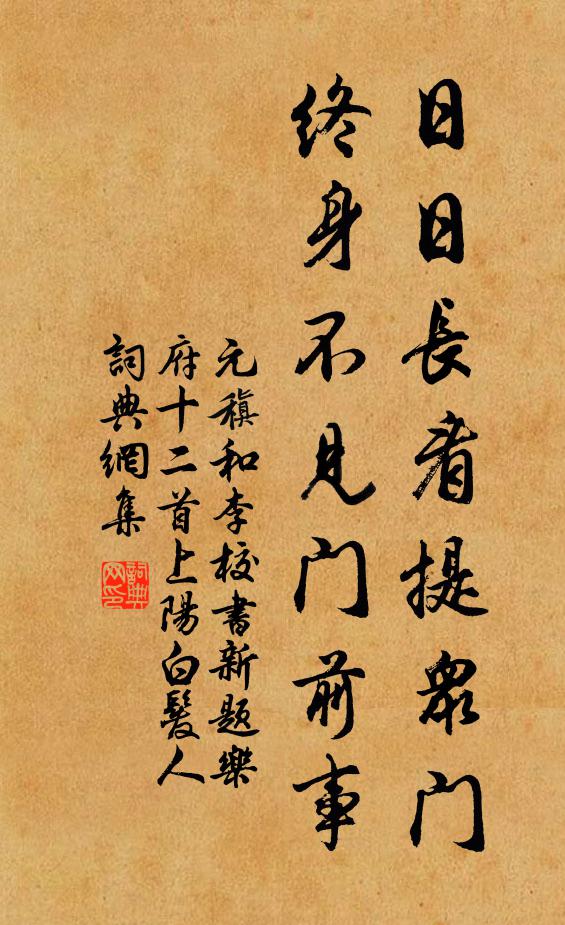 日日長看提眾門
終身不見門前事
元稹和李校書新題樂
府十二首上陽白髮人
詞典網集
詞典网印